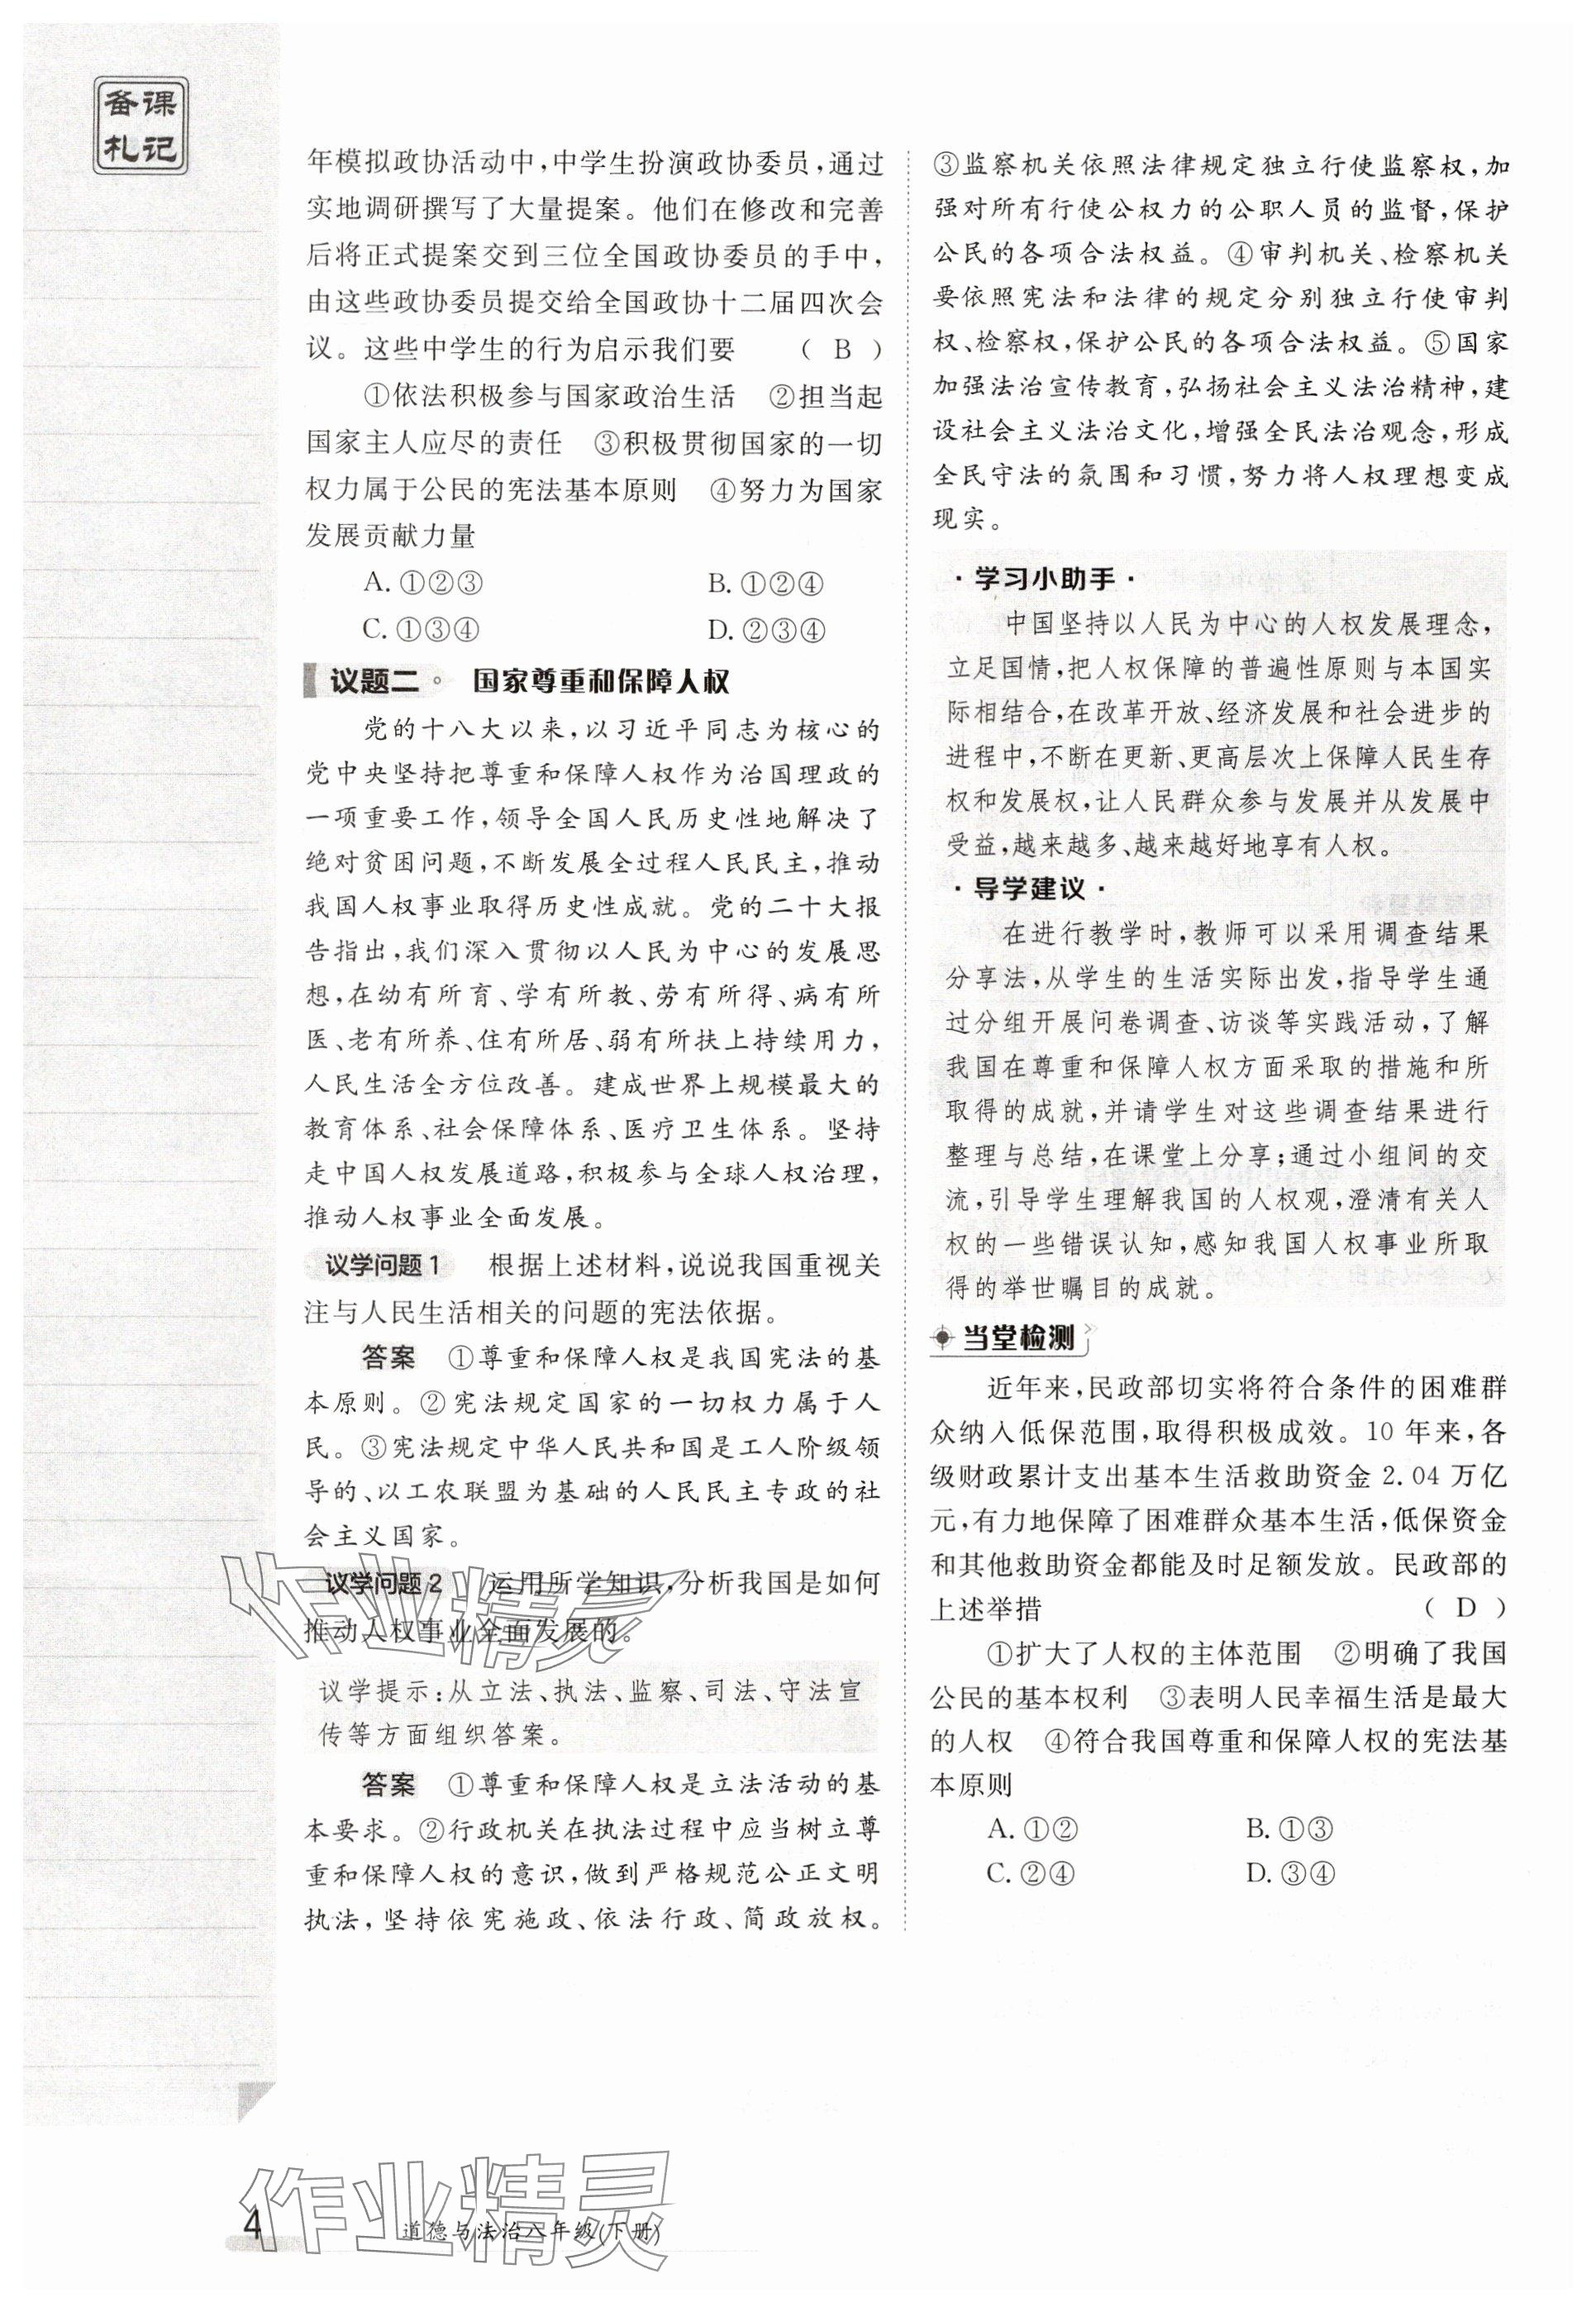 备课
札记
年模拟政协活动中，中学生扮演政协委员，通过
实地调研撰写了大量提案。他们在修改和完善
后将正式提案交到三位全国政协委员的手中，
由这些政协委员提交给全国政协十二届四次会
议。这些中学生的行为启示我们要 （ B ）
①依法积极参与国家政治生活 ②担当起
国家主人应尽的责任 ③积极贯彻国家的一切
权力属于公民的宪法基本原则 ④努力为国家
发展贡献力量
A. ①②③ B. ①②④
C. ①③④ D. ②③④
议题二 国家尊重和保障人权
党的十八大以来，以习近平同志为核心的
党中央坚持把尊重和保障人权作为治国理政的
一项重要工作，领导全国人民历史性地解决了
绝对贫困问题，不断发展全过程人民民主，推动
我国人权事业取得历史性成就。党的二十大报
告指出，我们深入贯彻以人民为中心的发展思
想，在幼有所育、学有所教、劳有所得、病有所
医、老有所养、住有所居、弱有所扶上持续用力，
人民生活全方位改善。建成世界上规模最大的
教育体系、社会保障体系、医疗卫生体系。坚持
走中国人权发展道路，积极参与全球人权治理，
推动人权事业全面发展。
议学问题1 根据上述材料，说说我国重视关
注与人民生活相关的问题的宪法依据。
答案 ①尊重和保障人权是我国宪法的基
本原则。②宪法规定国家的一切权力属于人
民。③宪法规定中华人民共和国是工人阶级领
导的、以工农联盟为基础的人民民主专政的社
会主义国家。
议学问题2 运用所学知识，分析我国是如何
推动人权事业全面发展的。
议学提示：从立法、执法、监察、司法、守法宣
传等方面组织答案。
答案 ①尊重和保障人权是立法活动的基
本要求。②行政机关在执法过程中应当树立尊
重和保障人权的意识，做到严格规范公正文明
执法，坚持依宪施政、依法行政、简政放权。
③监察机关依照法律规定独立行使监察权，加
强对所有行使公权力的公职人员的监督，保护
公民的各项合法权益。④审判机关、检察机关
要依照宪法和法律的规定分别独立行使审判
权、检察权，保护公民的各项合法权益。⑤国家
加强法治宣传教育，弘扬社会主义法治精神，建
设社会主义法治文化，增强全民法治观念，形成
全民守法的氛围和习惯，努力将人权理想变成
现实。
·学习小助手·
中国坚持以人民为中心的人权发展理念，
立足国情，把人权保障的普遍性原则与本国实
际相结合，在改革开放、经济发展和社会进步的
进程中，不断在更新、更高层次上保障人民生存
权和发展权，让人民群众参与发展并从发展中
受益，越来越多、越来越好地享有人权。
·导学建议·
在进行教学时，教师可以采用调查结果
分享法，从学生的生活实际出发，指导学生通
过分组开展问卷调查、访谈等实践活动，了解
我国在尊重和保障人权方面采取的措施和所
取得的成就，并请学生对这些调查结果进行
整理与总结，在课堂上分享；通过小组间的交
流，引导学生理解我国的人权观，澄清有关人
权的一些错误认知，感知我国人权事业所取
得的举世瞩目的成就。
当堂检测
近年来，民政部切实将符合条件的困难群
众纳入低保范围，取得积极成效。10 年来，各
级财政累计支出基本生活救助资金 2.04 万亿
元，有力地保障了困难群众基本生活，低保资金
和其他救助资金都能及时足额发放。民政部的
上述举措 （ D ）
①扩大了人权的主体范围 ②明确了我国
公民的基本权利 ③表明人民幸福生活是最大
的人权 ④符合我国尊重和保障人权的宪法基
本原则
A. ①② B. ①③
C. ②④ D. ③④
作业精灵
作业精灵
4 道德与法治八年级(下册)